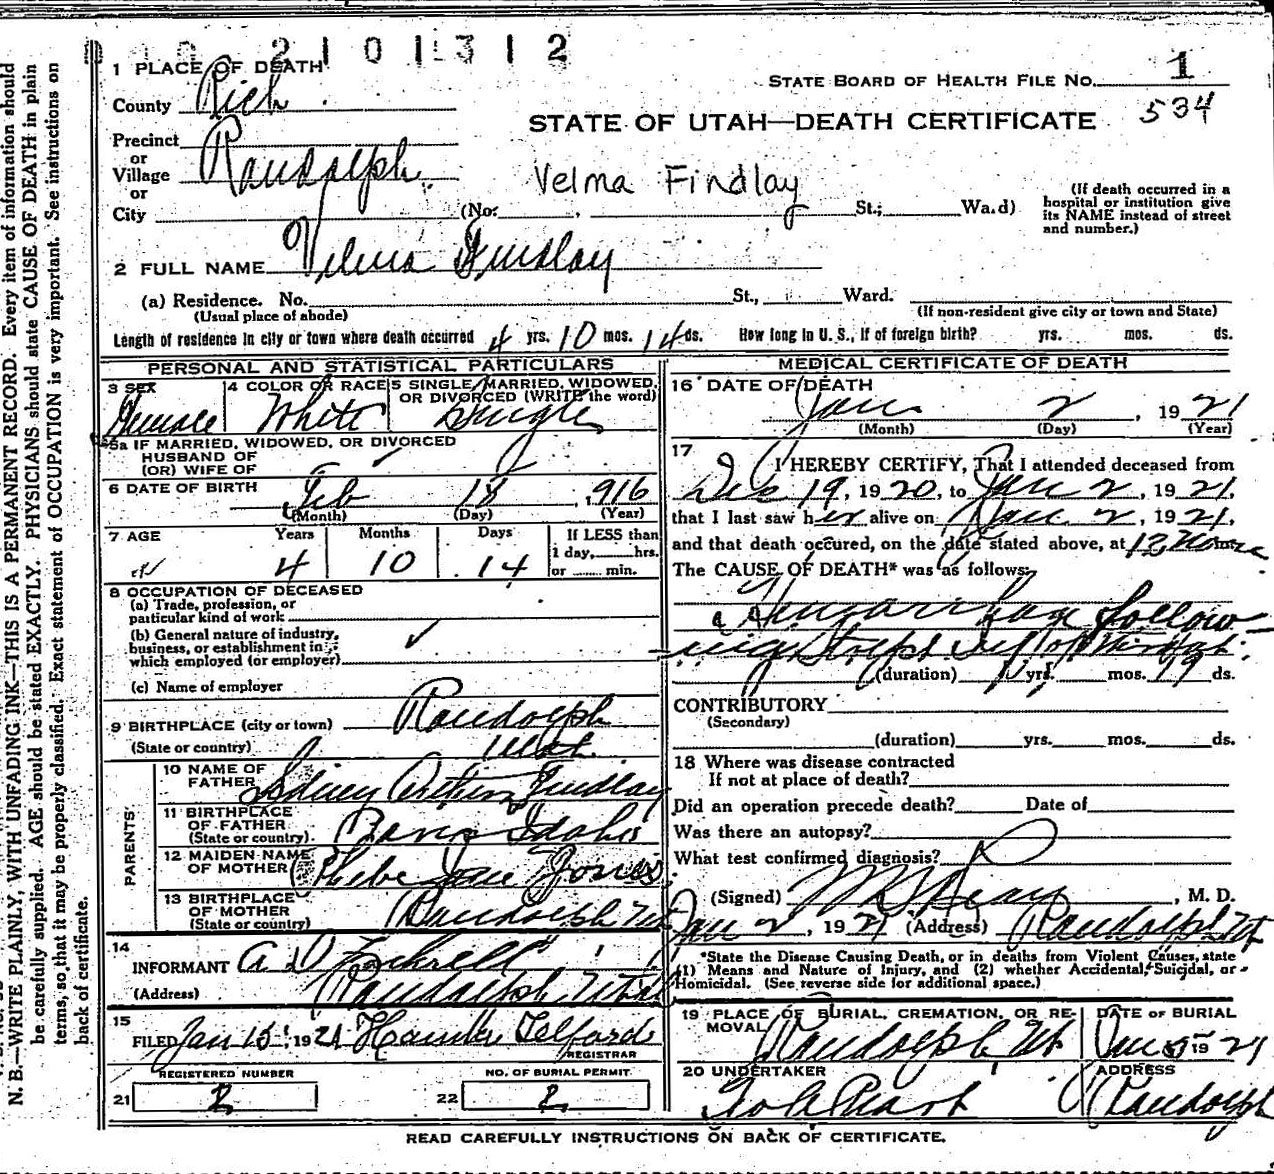 2 1 0 1 3 1 2
1 PLACE OF DEATH
STATE BOARD OF HEALTH FILE No. 1
County Rich
534
STATE OF UTAH—DEATH CERTIFICATE
Precinct
or
Village Randolph
or
Velma Findlay
City (No. , St.; Wa.d)
(If death occurred in a
hospital or institution give
its NAME instead of street
and number.)
2 FULL NAME Velma Findlay
(a) Residence. No. St., Ward.
(Usual place of abode) (If non-resident give city or town and State)
Length of residence in city or town where death occurred 4 yrs. 10 mos. 14 ds. How long in U. S., if of foreign birth? yrs. mos. ds.
PERSONAL AND STATISTICAL PARTICULARS
3 SEX Female
4 COLOR OR RACE White
5 SINGLE, MARRIED, WIDOWED,
OR DIVORCED (WRITE the word)
Single
5a IF MARRIED, WIDOWED, OR DIVORCED
HUSBAND OF
(OR) WIFE OF
6 DATE OF BIRTH Feb 18, 916
(Month) (Day) (Year)
7 AGE Years Months Days If LESS than
1 day, hrs.
4 10 14 or min.
8 OCCUPATION OF DECEASED
(a) Trade, profession, or
particular kind of work
(b) General nature of industry,
business, or establishment in
which employed (or employer)
(c) Name of employer
9 BIRTHPLACE (city or town) Randolph
(State or country) Utah
PARENTS
10 NAME OF
FATHER Sidney Arthur Findlay
11 BIRTHPLACE
OF FATHER
(State or country) Paris Idaho
12 MAIDEN NAME
OF MOTHER Phebe Jane Jones
13 BIRTHPLACE
OF MOTHER
(State or country) Randolph Ut
14
INFORMANT A D
(Address) Randolph Utah
15
FILED Jan 15, 1921 Telford
REGISTRAR
REGISTERED NUMBER NO. OF BURIAL PERMIT
21 2 22 2
MEDICAL CERTIFICATE OF DEATH
16 DATE OF DEATH
Jan 2, 1921
(Month) (Day) (Year)
17
I HEREBY CERTIFY, That I attended deceased from
Dec 19, 1920, to Jan 2, 1921,
that I last saw her alive on Jan 2, 1921,
and that death occured, on the date stated above, at 12
The CAUSE OF DEATH* was as follows:
follow
ing
(duration) yrs. mos. 19 ds.
CONTRIBUTORY
(Secondary)
(duration) yrs. mos. ds.
18 Where was disease contracted
If not at place of death?
Did an operation precede death? Date of
Was there an autopsy?
What test confirmed diagnosis?
(Signed) , M. D.
Jan 2, 1921 (Address) Randolph Ut
*State the Disease Causing Death, or in deaths from Violent Causes, state
(1) Means and Nature of Injury, and (2) whether Accidental, Suicidal, or
Homicidal. (See reverse side for additional space.)
19 PLACE OF BURIAL, CREMATION, OR RE-
MOVAL Randolph Ut
DATE OF BURIAL
Jan 5 1921
20 UNDERTAKER
ADDRESS
Randolph
READ CAREFULLY INSTRUCTIONS ON BACK OF CERTIFICATE.
N. B.—WRITE PLAINLY, WITH UNFADING INK—THIS IS A PERMANENT RECORD. Every item of information should
be carefully supplied. AGE should be stated EXACTLY. PHYSICIANS should state CAUSE OF DEATH in plain
terms, so that it may be properly classified. Exact statement of OCCUPATION is very important. See instructions on
back of certificate.